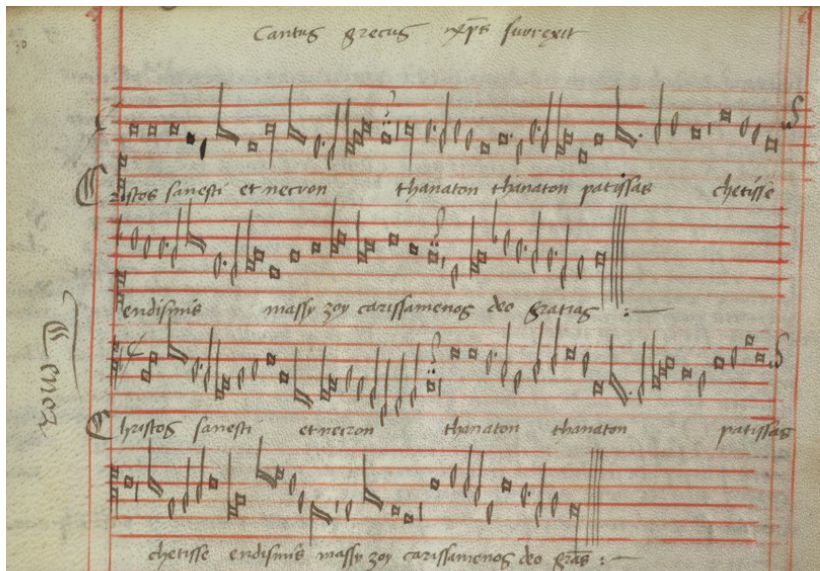 Cantus grecus xp̄s surrexit
Cristos sanesti et necron thanaton thanaton patissas chetisse
endismis massy zoy carissamenos deo gratias :
Tenor
Christos sanesti et necron thanaton thanaton patissas
chetisse endismis massy zoy carissamenos deo gr̄as :